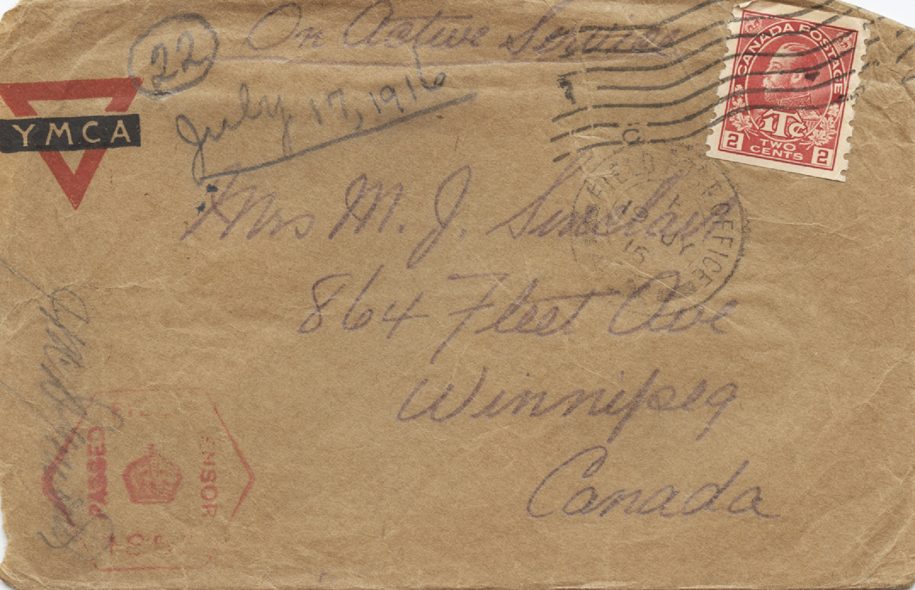 On Active Service
22
July 17, 1916
YMCA
CANADA POSTAGE
1Tc
2 TWO CENTS 2
FIELD POST OFFICE
Mrs M. J. Sinclair
864 Fleet Ave
Winnipeg
Canada
PASSED